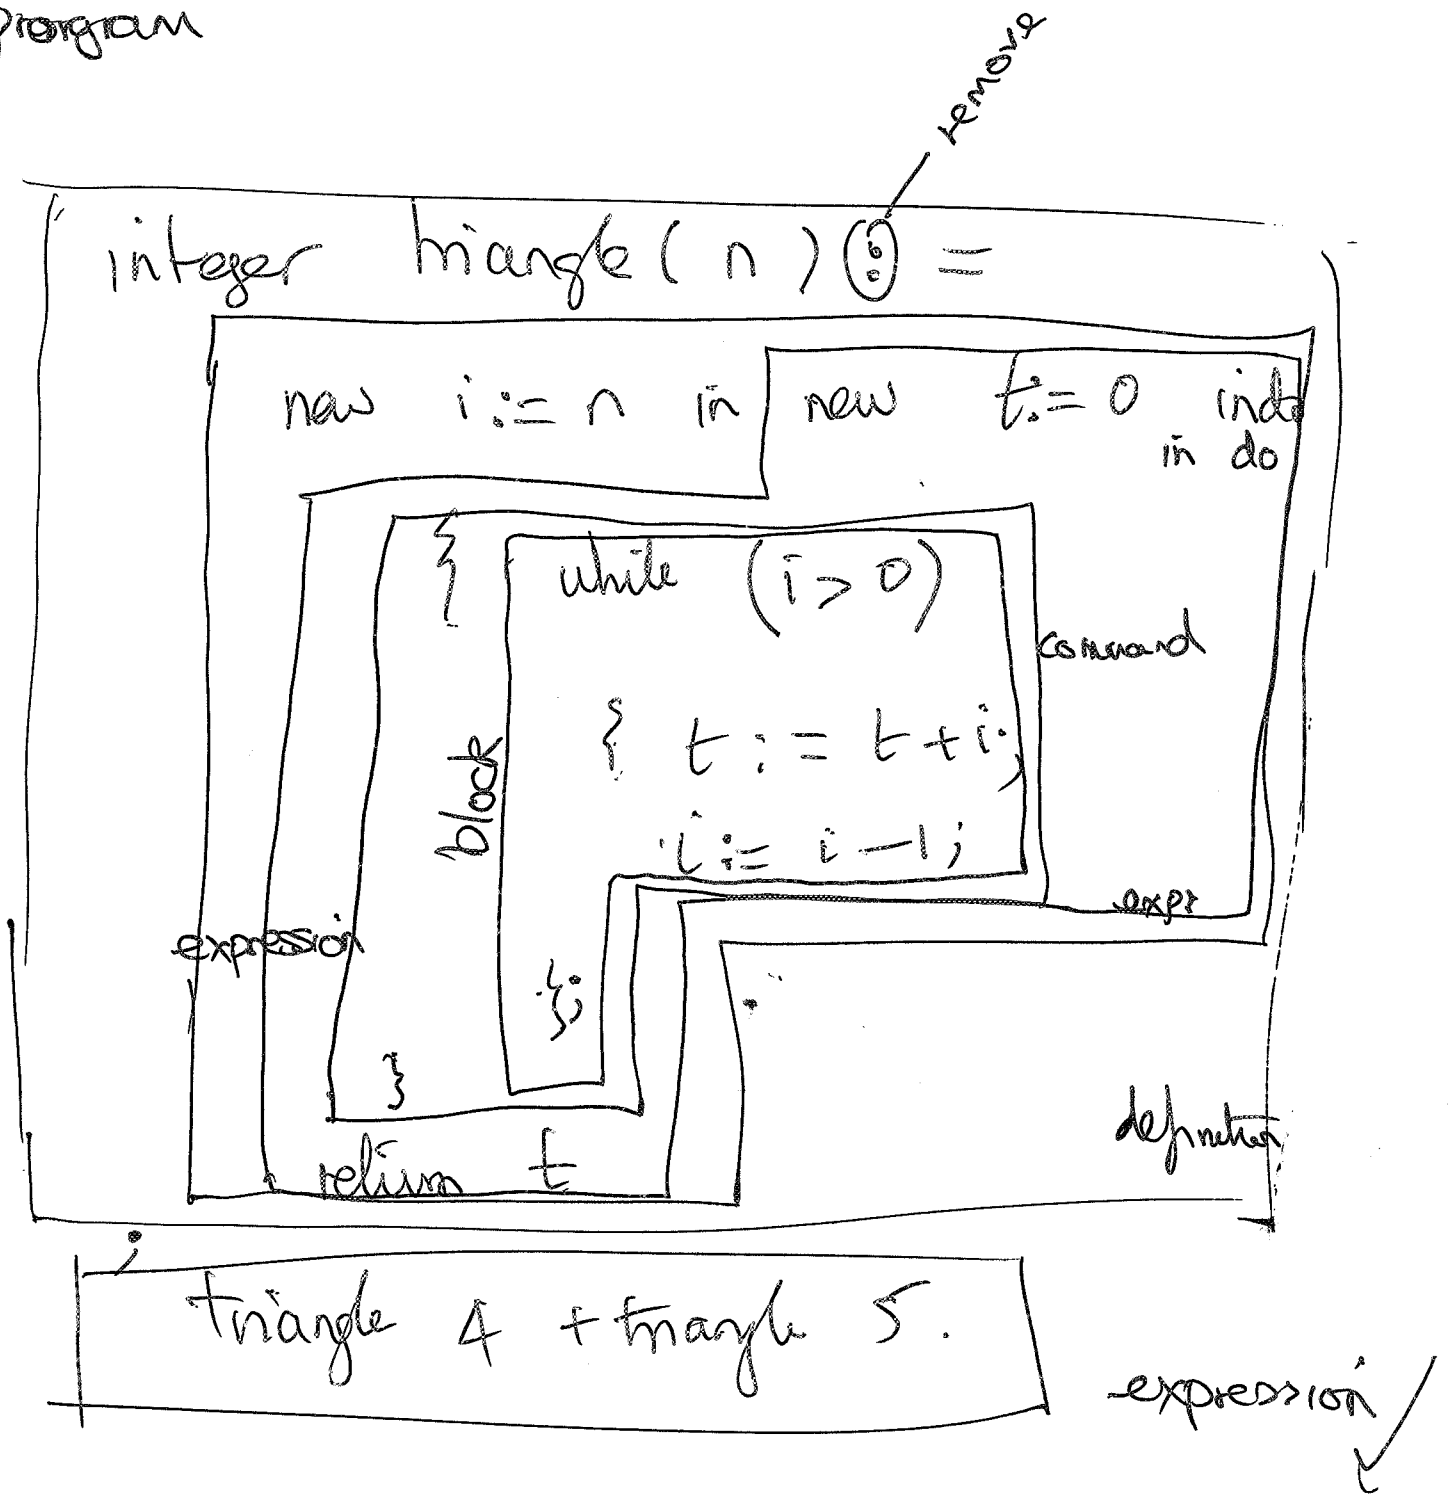 prorgram
remove
integer triangle ( n ) : =
new i := n in new t := 0 indo
in do
{ while (i > 0)
command
{ t := t + i;
block
i := i - 1;
expr
expression
};
}
definition
return t
;
triangle 4 + triangle 5.
expression